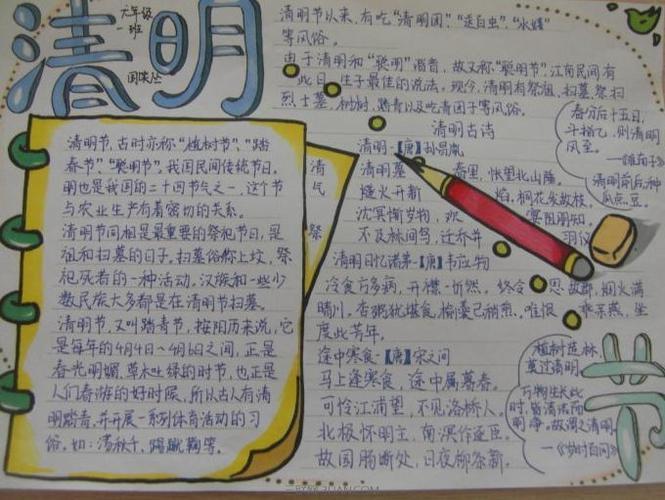 清明
六年级
一班
清明节以来,有吃"清明团""送白虫""水嬉"
等风俗。
由于清明和"聪明"谐音,故又称"聪明节",江南民间有
此日 生子最佳的说法。现今,清明有祭祖、扫墓、祭扫
烈士墓、植树、踏青以及吃青团子等风俗。
清明古诗
清明-【唐】孙昌胤
清明暮 春里,怅望北山陲。
燧火开新 焰,桐花发故枝。
沈冥惭岁物,欢 宴阻朋知。
不及林间鸟,迁乔并 羽仪
清明日忆诸弟-【唐】韦应物
冷食方多病,开襟一忻然。终令 思故郡,烟火满
晴川。杏粥犹堪食,榆羹已稍煎。唯恨 乖亲燕,坐
度此芳年。
途中寒食-【唐】宋之问
马上逢寒食,途中属暮春。
可怜江浦望,不见洛桥人。
北极怀明主,南溟作逐臣。
故园肠断处,日夜柳条新。
清明节,古时亦称"植树节""踏
春节""聪明节",我国民间传统节日。
明也是我国的二十四节气之一,这个节
与农业生产有着密切的关系。
清明节同祖是最重要的祭祀节日,是
祖和扫墓的日子。扫墓俗称上坟,祭
祀死者的一种活动。汉族和一些少
数民族大多都是在清明节扫墓。
清明节,又叫踏青节,按阳历来说,它
是每年的4月4日~4月6日之间,正是
春光明媚,草木吐绿的时节,也正是
人们春游的好时候,所以古人有清
明踏青,并开展一系列体育活动的习
俗。如:荡秋千、踢蹴鞠等。
清
气
祭
春分后十五日,
斗指乙,则清明
风至。
清明前后,种
瓜点豆。
植树造林,
莫过清明。
万物生长此
时,皆清洁而
明净,故谓之清明。
—《岁时百问》
节